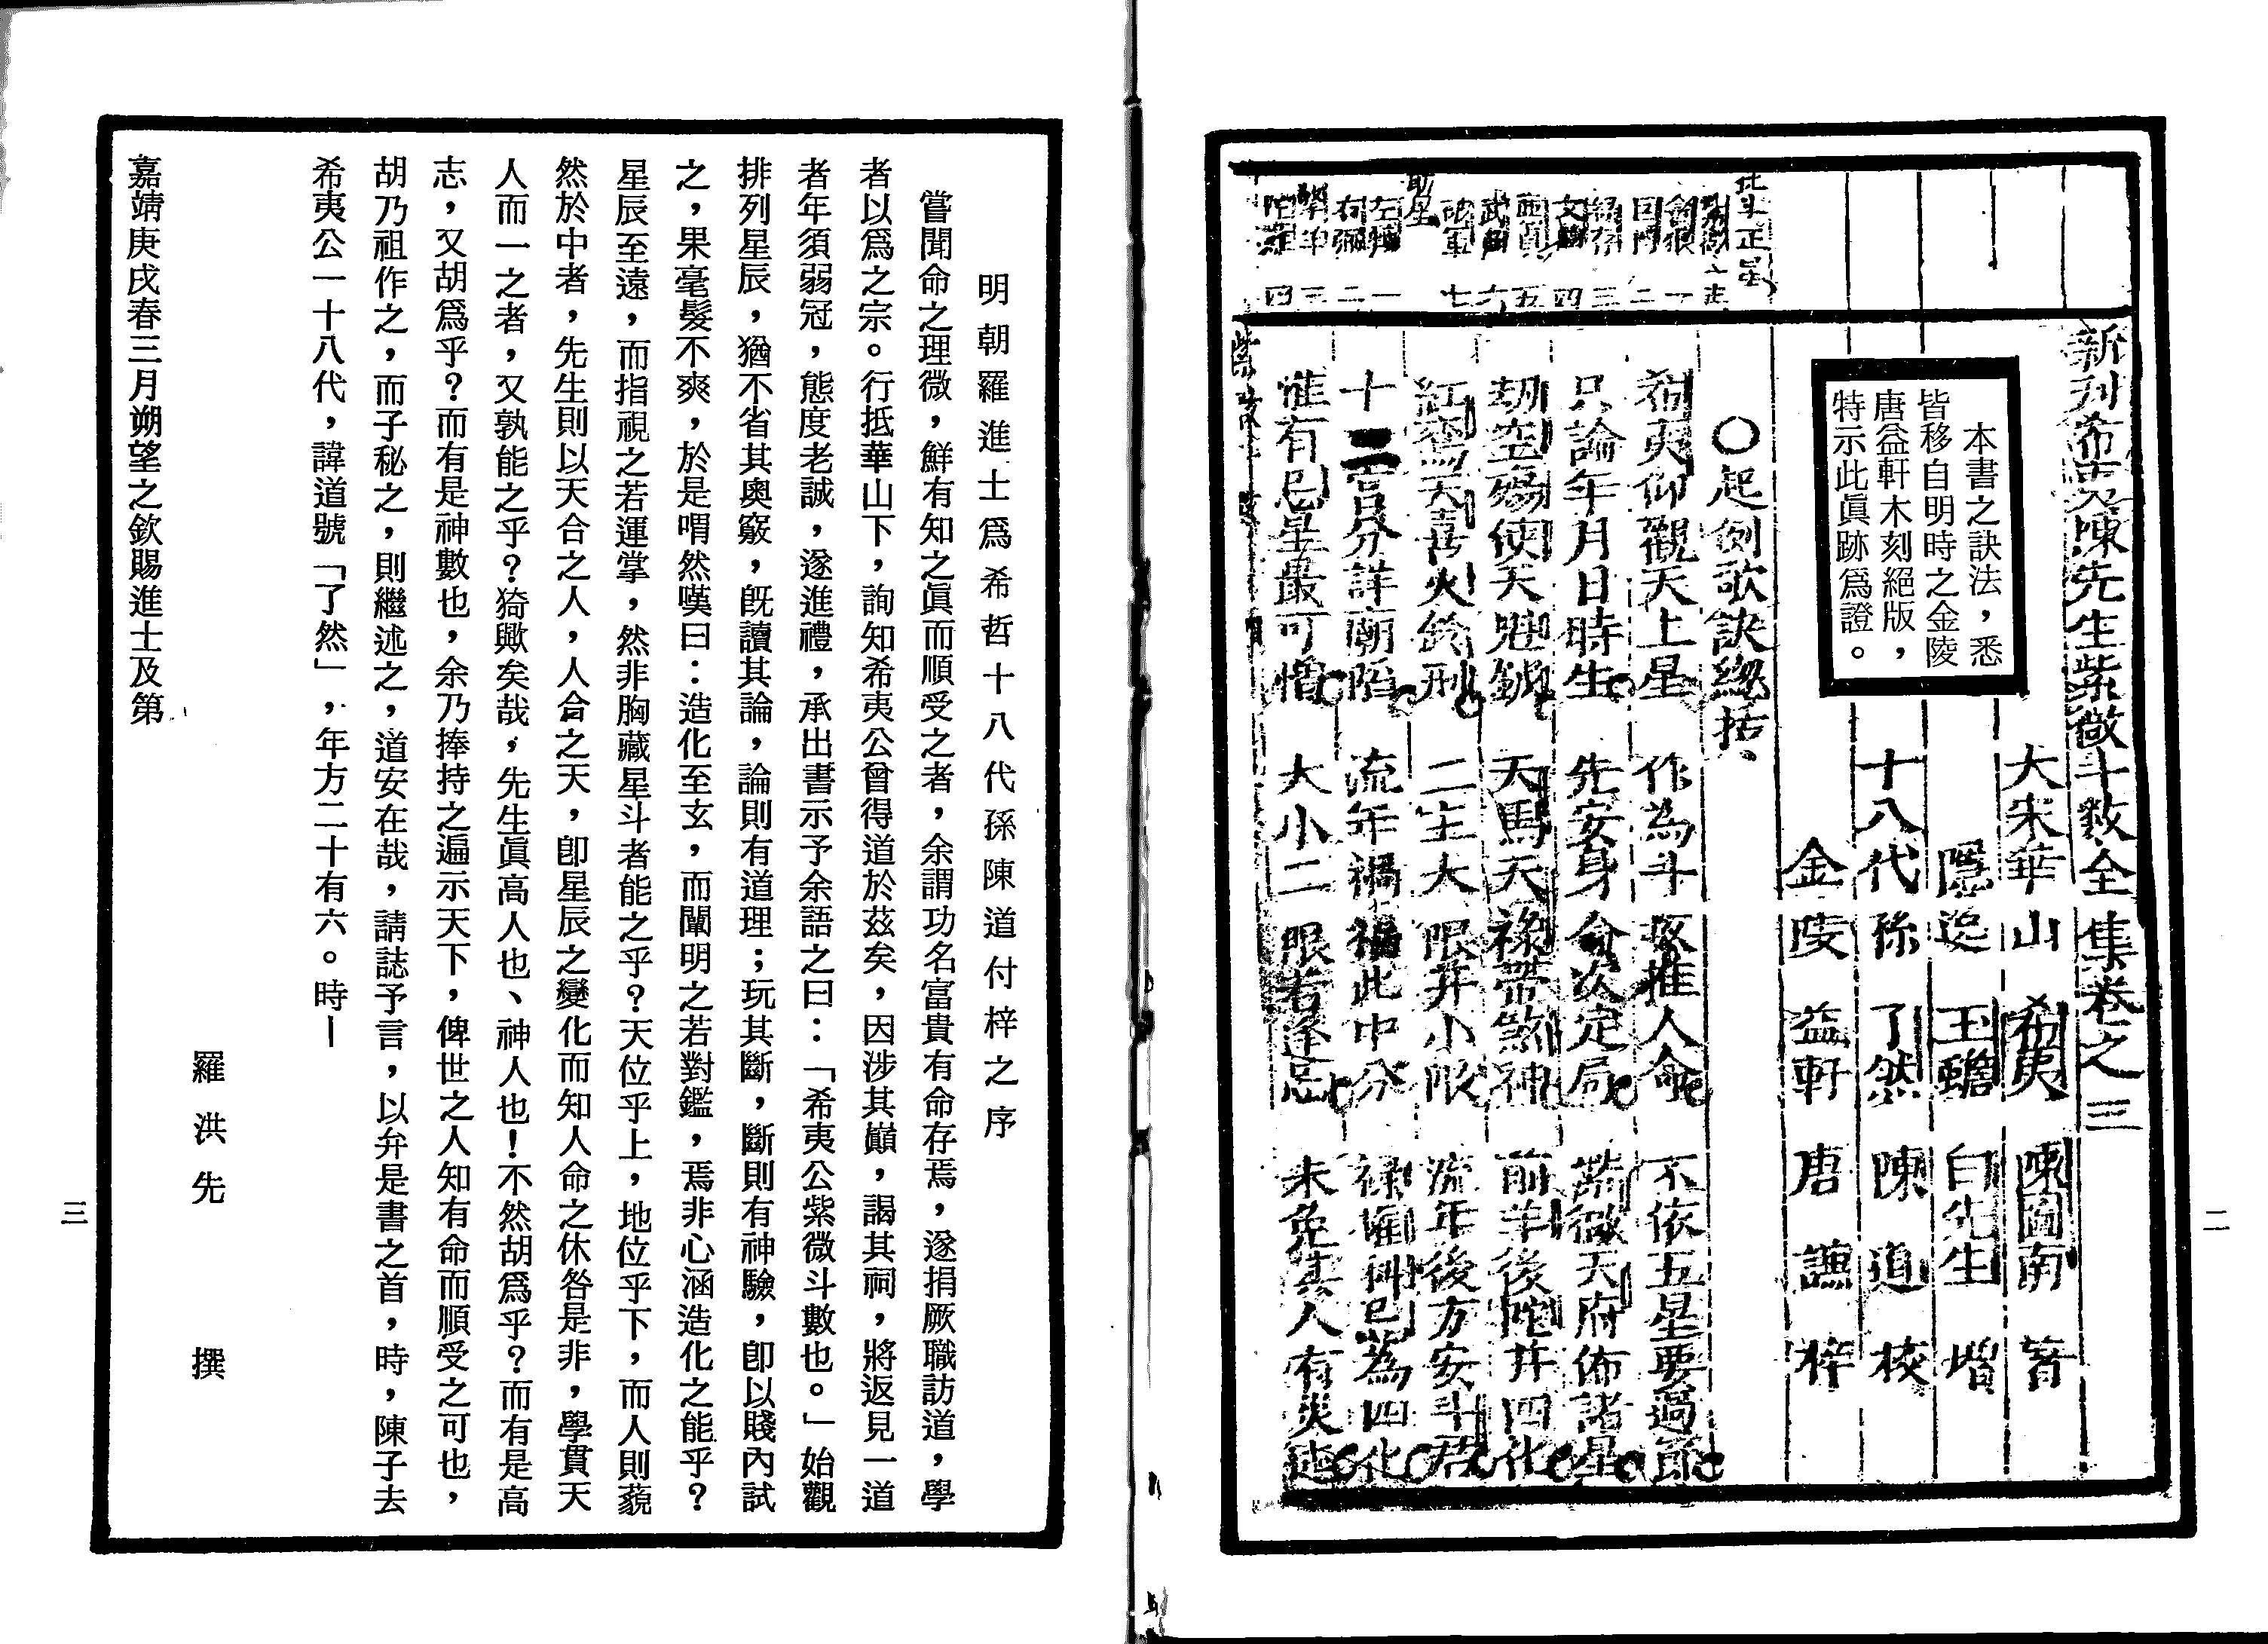 新刋希夷陳先生紫微斗数全集卷之三
大宋華山 希夷 陳圖南 著
隱逸 玉蟾 白先生 增
十八代孫 了然 陳道 校
金陵 益軒 唐謙 梓
本書之訣法，悉
皆移自明時之金陵
唐益軒木刻絕版，
特示此眞跡爲證。
○起例歌訣總括
希夷仰觀天上星 作為斗数推人命 不依五星要過節
只論年月日時生 先安身命次定局 紫微天府佈諸星
劫空殤使天魁鉞 天馬天祿帶煞神 前羊後陀并四化
紅鸞天喜火鈴刑 二主大限并小限 流年後方安斗君
十二宮分詳廟陷 流年禍福此中分 祿權科忌為四化
惟有忌星最可憎 大小二限若逢忌 未免其人有災迍
北斗正星
助星
二
明朝羅進士爲希哲十八代孫陳道付梓之序
嘗聞命之理微，鮮有知之眞而順受之者，余謂功名富貴有命存焉，遂捐厥職訪道，學
者以爲之宗。行抵華山下，詢知希夷公曾得道於茲矣，因涉其巔，謁其祠，將返見一道
者年須弱冠，態度老誠，遂進禮，承出書示予余語之曰：「希夷公紫微斗數也。」始觀
排列星辰，猶不省其奥竅，旣讀其論，論則有道理；玩其斷，斷則有神驗，卽以賤內試
之，果毫髮不爽，於是喟然嘆曰：造化至玄，而闡明之若對鑑，焉非心涵造化之能乎？
星辰至遠，而指視之若運掌，然非胸藏星斗者能之乎？天位乎上，地位乎下，而人則藐
然於中者，先生則以天合之人，人合之天，卽星辰之變化而知人命之休咎是非，學貫天
人而一之者，又孰能之乎？猗歟矣哉，先生眞高人也、神人也！不然胡爲乎？而有是高
志，又胡爲乎？而有是神數也，余乃捧持之遍示天下，俾世之人知有命而順受之可也，
胡乃祖作之，而子秘之，則繼述之，道安在哉，請誌予言，以弁是書之首，時，陳子去
希夷公一十八代，諱道號「了然」，年方二十有六。時ー
羅洪先 撰
嘉靖庚戌春三月朔望之欽賜進士及第
三